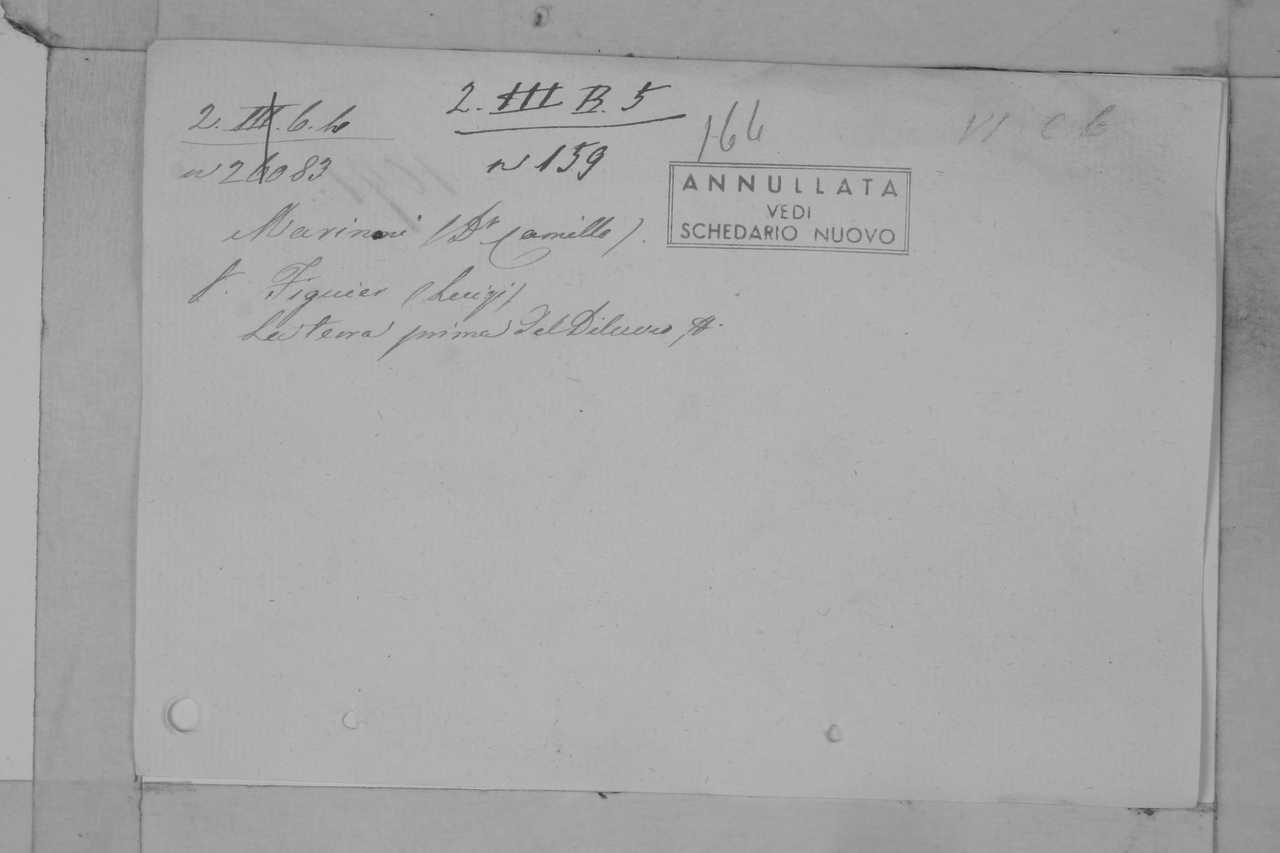 2. III. 6. 4
2. III B. 5
164
VI C 6
n 26083
n 159
ANNULLATA
VEDI
SCHEDARIO NUOVO
Marinoni (Dr. Camillo).
V. Figuier (Luigi)
La terra prima del Diluvio, &.